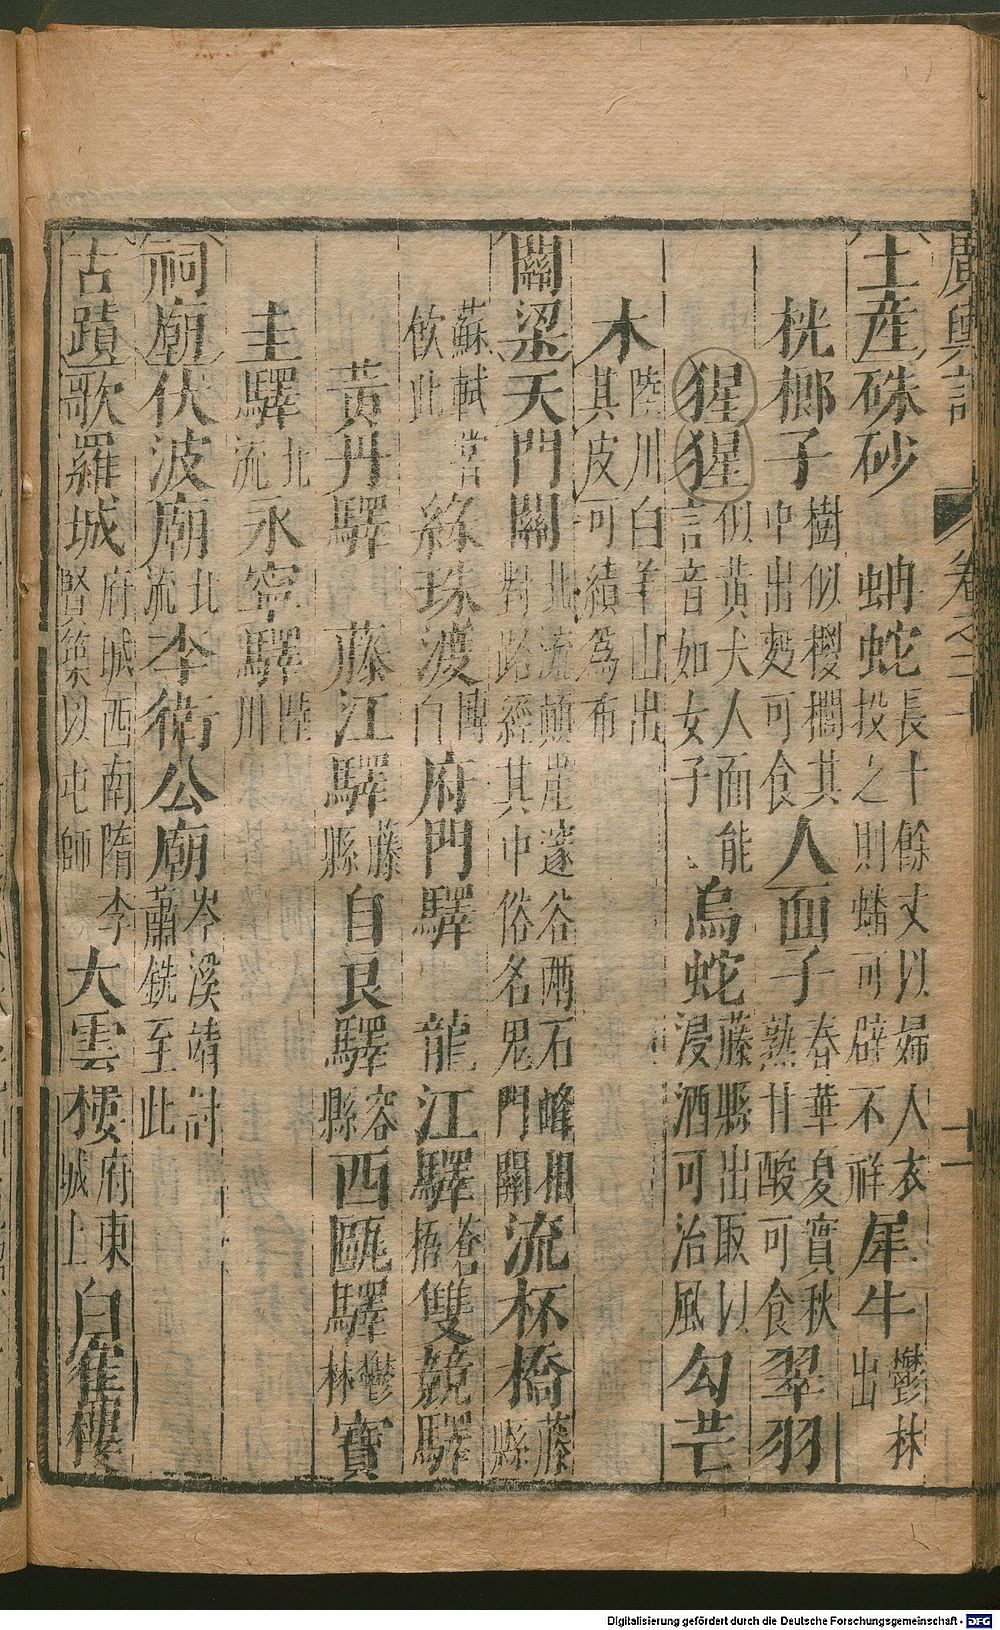 廣輿記 卷之二 十一
土産硃砂 蚺蛇長十餘丈以婦人衣投之則蟠可辟不祥犀牛鬱林出
桄榔子樹似椶櫚其中出麪可食人面子春華夏實秋熟甘酸可食翠羽
猩猩似黃犬人面能言音如女子烏蛇藤縣出取以浸酒可治風勾芒
木陸川白羊山出其皮可績爲布
關梁天門關北流顛崖邃谷兩石峰相對路經其中俗名鬼門關流杯橋藤縣
蘇軾嘗飲此綠珠渡博白府門驛 龍江驛蒼梧雙競驛
黃丹驛 藤江驛藤縣自良驛容縣西甌驛鬱林寶
圭驛北流永寧驛陸川
祠廟伏波廟北流李衛公廟岑溪靖討蕭銑至此
古蹟歌羅城府城西南隋李賢築以屯師大雲樓府東城上白雀樓
Digitalisierung gefördert durch die Deutsche Forschungsgemeinschaft - DFG